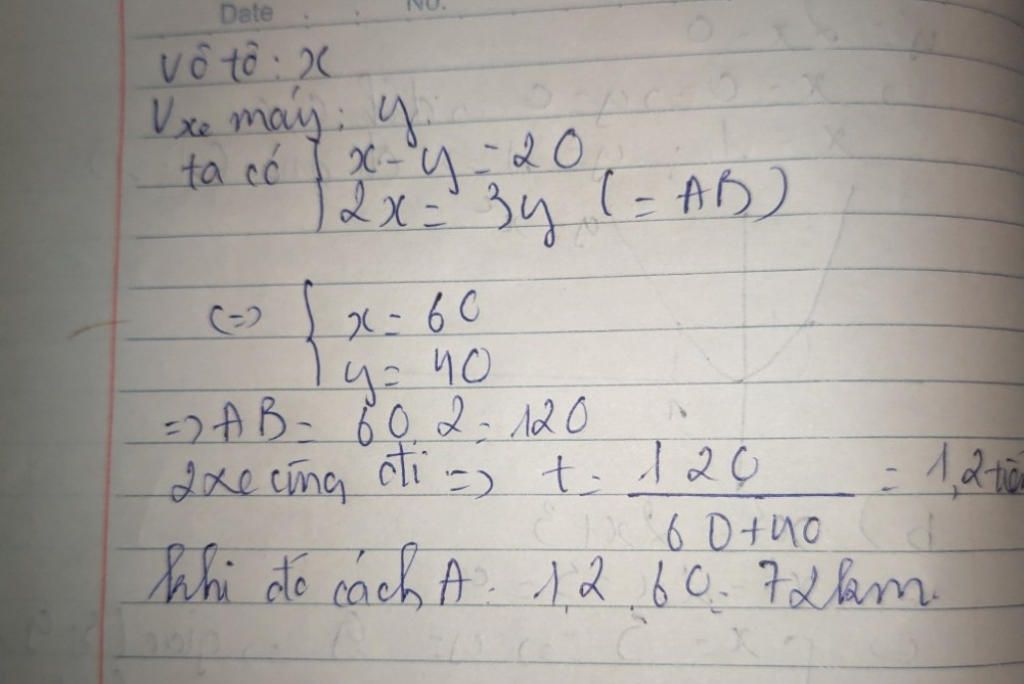 Date No.
Vô tô: x
Vxe máy: y
ta có { x - y = 20
2x = 3y (= AB)
<=> { x = 60
y = 40
=> AB = 60.2 = 120
2xe cùng đi => t = 120 / 60+40 = 1,2
khi đó cách A: 1,2.60 = 72km.